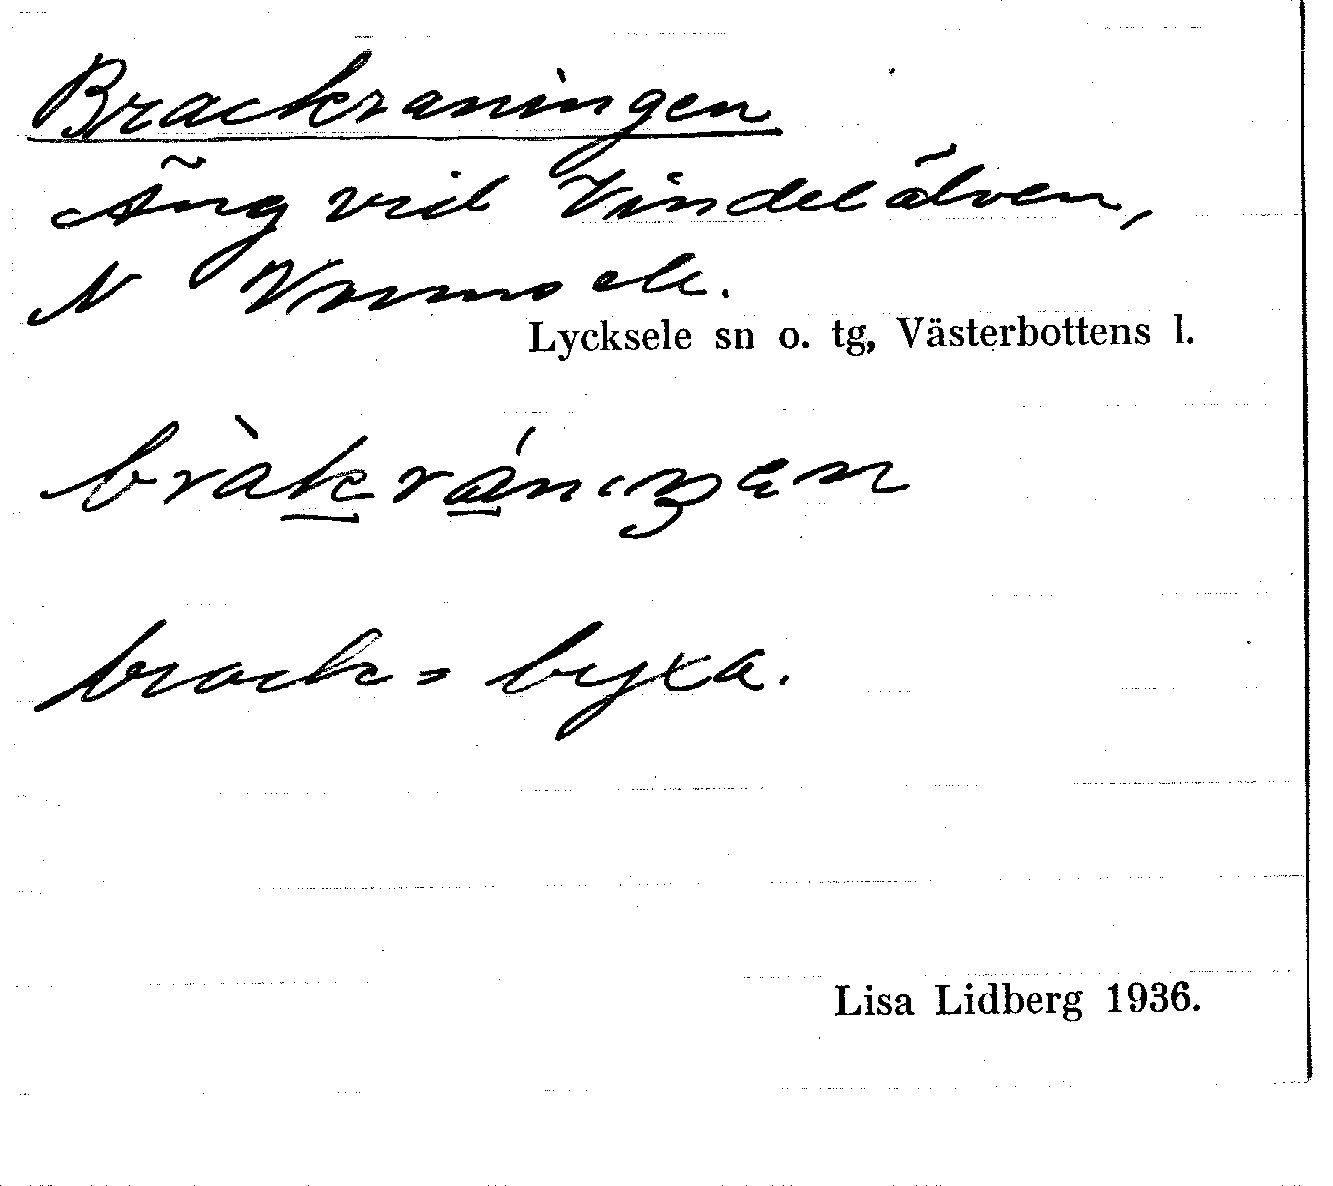 Brackraningen
Äng vid Vindelälven,
N Vormsele.
Lycksele sn o. tg, Västerbottens l.
bràkráningen
brack = byxa.
Lisa Lidberg 1936.